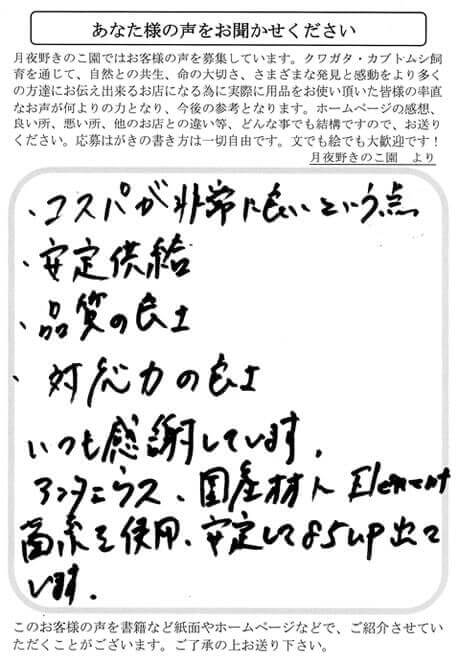 あなた様の声をお聞かせください
月夜野きのこ園ではお客様の声を募集しています。クワガタ・カブトムシ飼
育を通じて、自然との共生、命の大切さ、さまざまな発見と感動をより多く
の方達にお伝え出来るお店になる為に実際に用品をお使い頂いた皆様の率直
なお声が何よりの力となり、今後の参考となります。ホームページの感想、
良い所、悪い所、他のお店との違い等、どんな事でも結構ですので、お送り
ください。応募はがきの書き方は一切自由です。文でも絵でも大歓迎です！
月夜野きのこ園　より
・コスパが非常に良いという点
・安定供給
・品質の良さ
・対応力の良さ
いつも感謝しています。
アンタエウス、国産材 Element
菌糸を使用、安定して85up出て
います。
このお客様の声を書籍など紙面やホームページなどで、ご紹介させてい
ただくことがございます。ご了承の上お送り下さい。